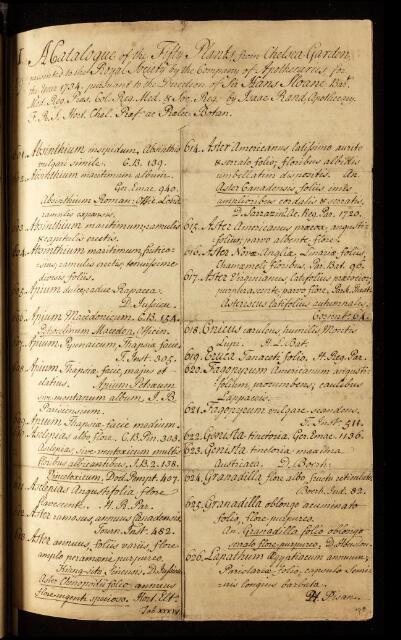 A Catalogue of the Fifty Plants from Chelsea Garden,
presented to the Royal Society by the Company of Apothecaries, for
the Year 1734, pursuant to the Direction of Sir Hans Sloane Bart.
Med. Reg. Præs. Col. Reg. Med. & Soc. Reg. by Isaac Rand, Apothecary
F.R.S. Hort. Chel. Præf. ac Prælec. Botan.
Absinthium insipidum, Absinthio
vulgari simile. C.B. 139.
Absinthium maritimum album.
Ger. Emac. 940.
Absinthium Roman: Offic. Lond.
ramulis expansis.
Absinthium maritimum ramulis
& capitulis erectis.
Absinthium maritimum frutico-
sum, ramulis erectis, tenuissime
divisis, foliis.
Apium dulce, radice Rapacea
D. Jussieu.
Apium Macedonicum. C.B. 154.
Petroselinum Macedon. Officin.
Apium Pyrenaicum Thapsiæ facie
T. Inst. 305.
Apium Thapsiæ facie, majus et
elatius. Apium Petræum
sive montanum album, J.B.
Parisiensium.
Apium Thapsiæ facie medium.
Asclepias albo flore. C.B. Pin. 303.
Asclepias sive Vincetoxicum multis
floribus albicantibus. J.B. 2. 138.
Vincetoxicum, Dod. Pempt. 407.
Asclepias Angustifolia, flore
flavescente. H.R. Par.
Aster ramosus, annuus Canadensis.
Town. Inst. 482.
Aster annuus, foliis variis, flore
amplo peramœne purpureo.
Sinensis. D. Jussieu
Aster Chenopodii folio annuus
flore ingenti specioso. Hort. Elt.
Tab. XXXIV.
614. Aster Americanus latissimo aurito
& sonato, folio, floribus albidis
umbellatim dispositis. An
Aster Canadensis, foliis imis
amplioribus cordatis & serratis,
D. Sarazin Ac. Reg. Par. 1720.
615. Aster Americanus præcox, angusti-
folius, parvo albente, flore.
616. Aster Novæ Angliæ, Linariæ foliis,
Chamæmeli floribus. Par. Bat. 96.
617. Aster Virginianus latifolius
purpurascente parvo flore. Park. Theatr.
Astericus latifolius autumnalis
Cornut: 64.
618. Cnicus cæruleus humilis Montis
Lupi. H.L. Bat.
619. Eruca Tanaceti folio. H. Reg. Par.
620. Fagopyrum Americanum angusti-
folium, procumbens, caulibus
Lappaceis.
621. Fagopyrum vulgare scandens.
T. Inst. 511.
622. Genista tinctoria. Ger. Emac. 1136.
623. Genista tinctoria maxima
Austriaca. D. Boerh.
624. Granadilla flore albo fructu reticulato
Boerh. Ind. 82.
625. Granadilla oblongo acuminato
folio, flore purpureo.
An Granadilla folio oblongo
serrato flore purpureo, D. Houston.
626. Lapathum Ægyptiacum annuum,
Parietariæ folio, capsulo semi-
nis longius barbata.
H. Pisan.